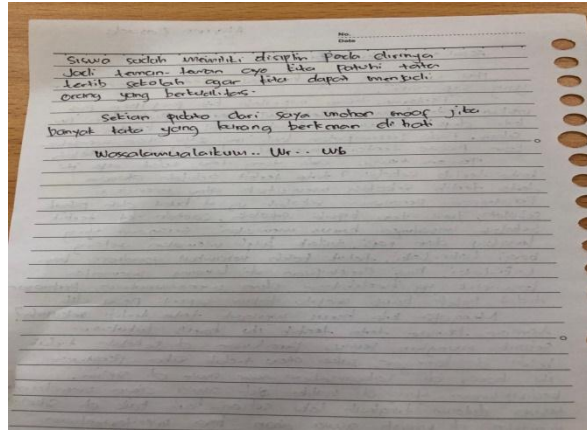 No.
Date
siswa sudah memiliki disiplin pada dirinya
Jadi teman-teman ayo kita patuhi tata
tertib sekolah agar kita dapat menjadi
orang yang berkualitas.
Sekian pidato dari saya mohon maaf jika
banyak kata yang kurang berkenan di hati
Wassalamualaikum.. Wr.. Wb